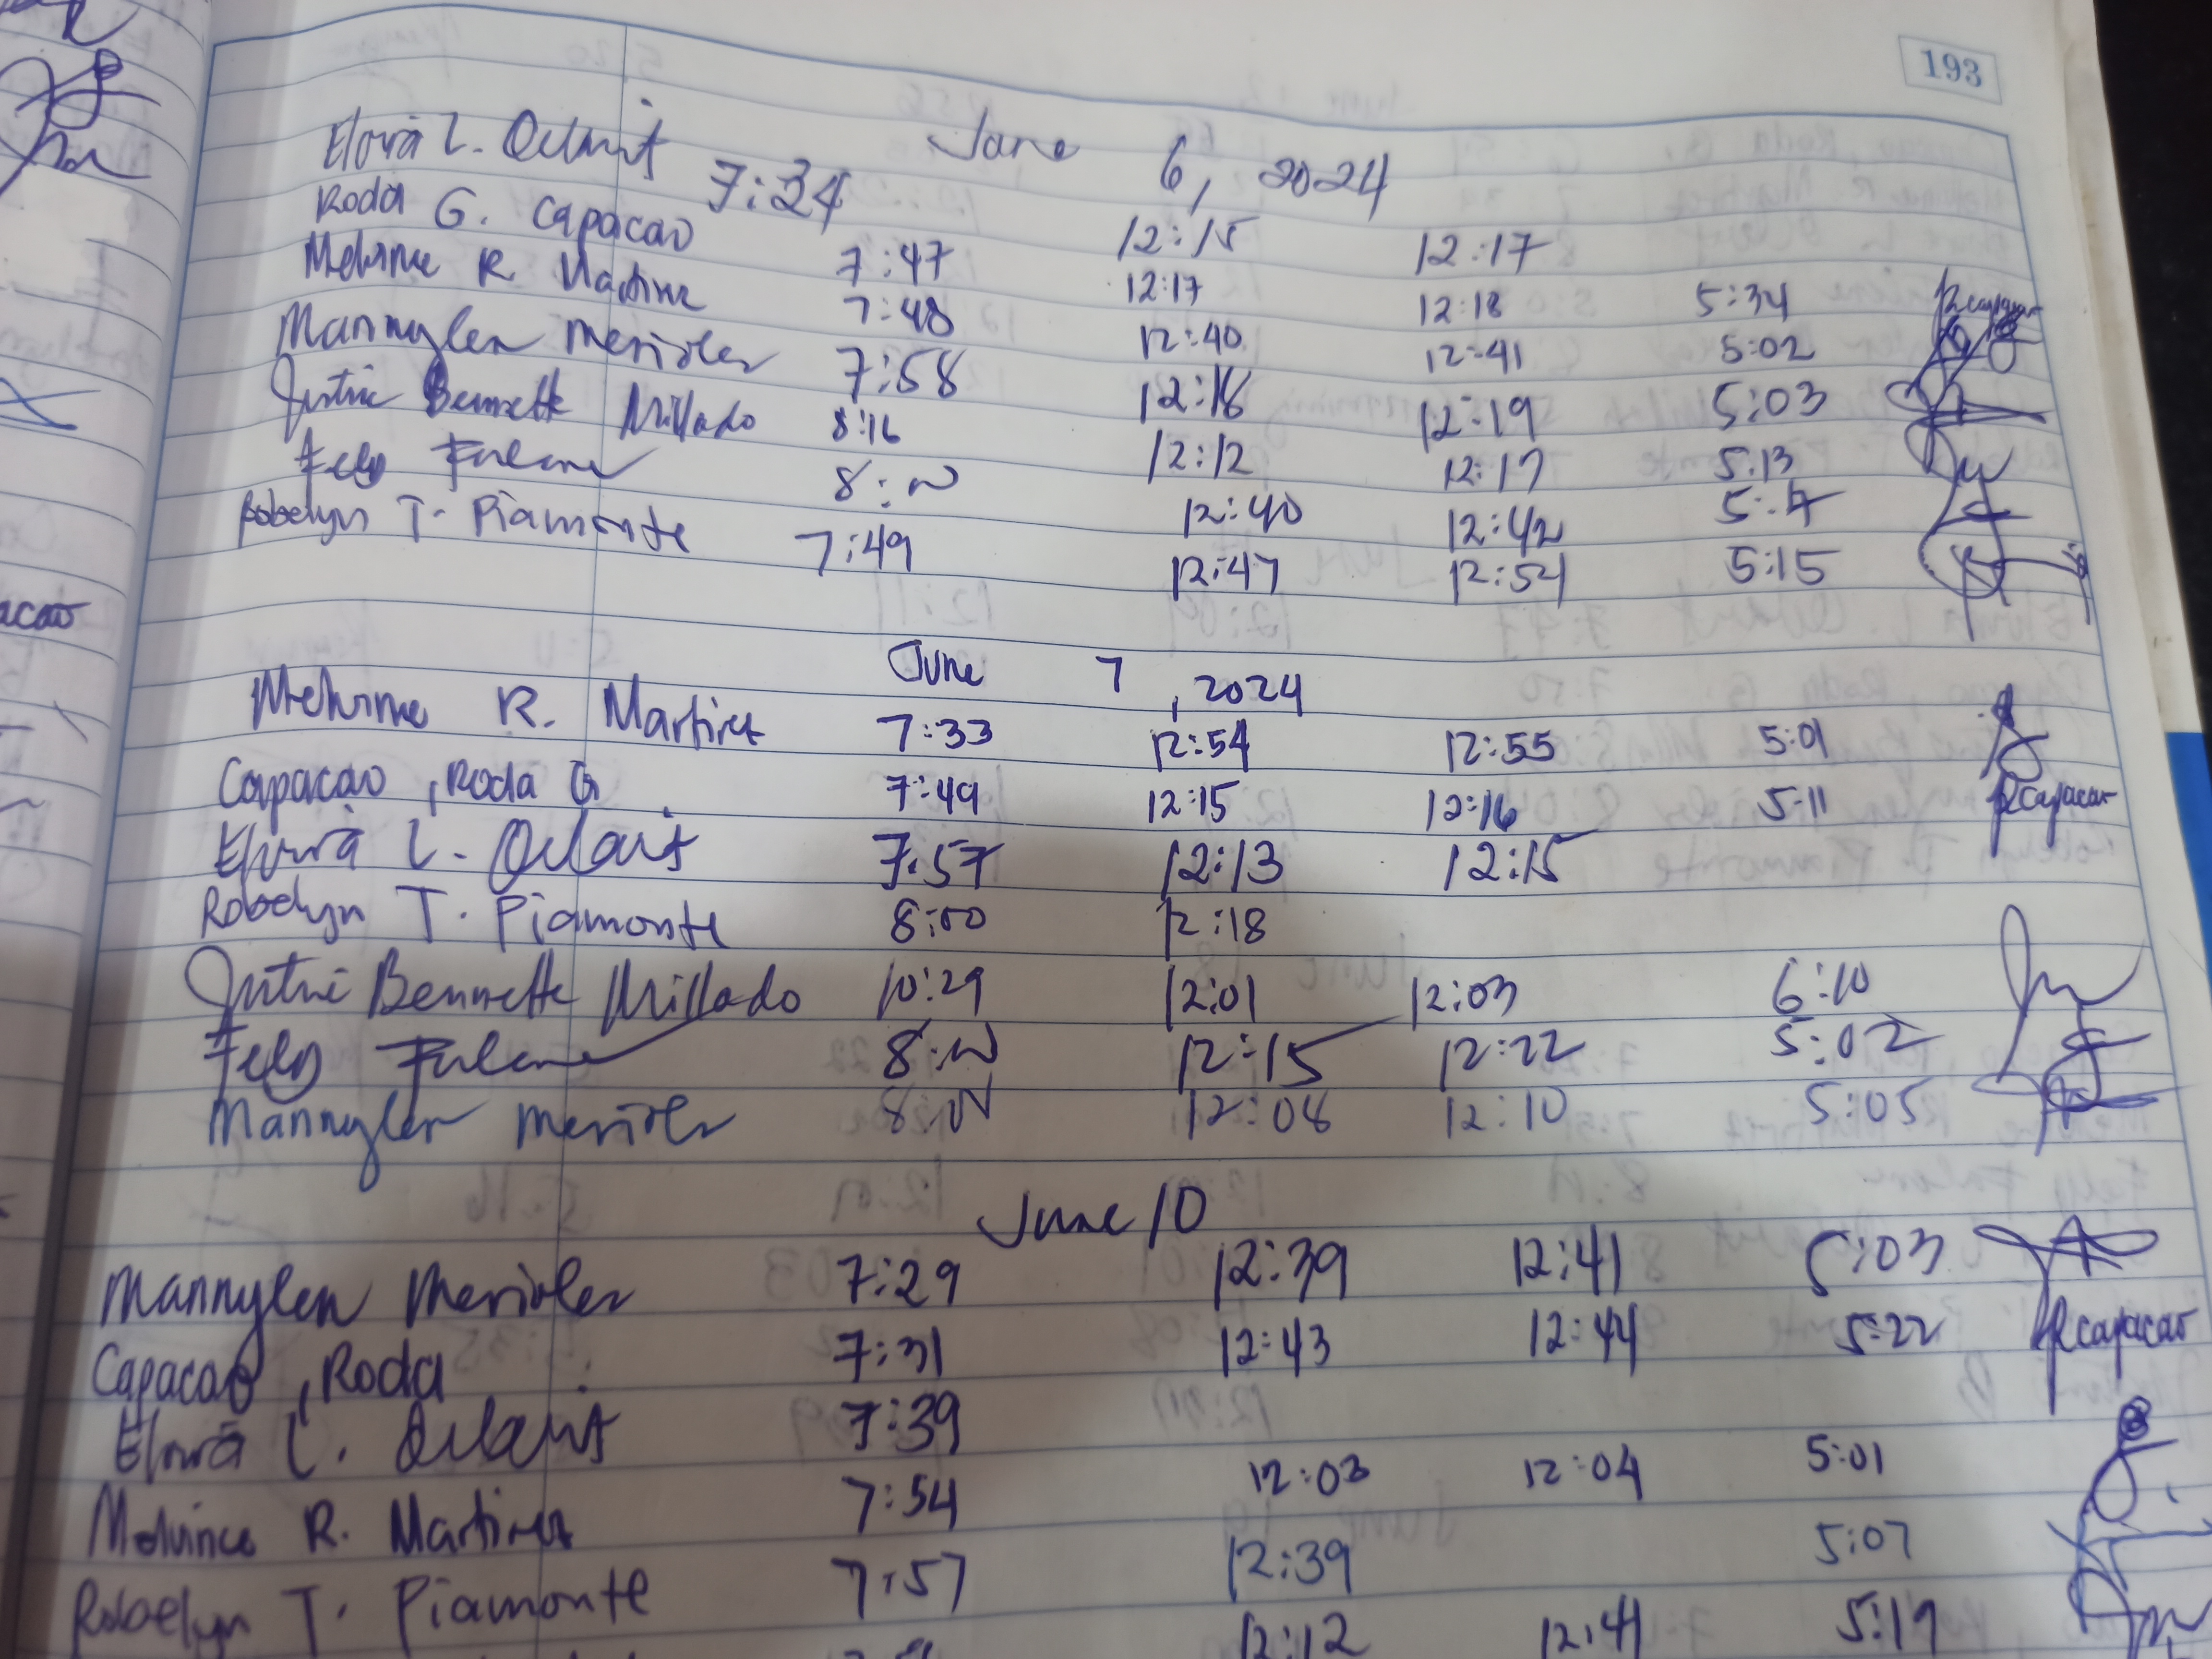 193
June 6, 2024
Elvira L. 7:24 12:15 12:17
Roda G. Capacao 7:47 12:17 12:18 5:34 Rcapacao
Melvince R. Martinez 7:48 12:40 12:41 5:02
Mannylen Merioles 7:58 12:18 12:19 5:03
Justine Bennette Millado 8:16 12:12 12:17 5:13
Fely 8:00 12:40 12:42
Robelyn T. Piamonte 7:49 12:47 12:54 5:15
June 7, 2024
Melvince R. Martinez 7:33 12:54 12:55 5:01
Capacao, Roda G. 7:49 12:15 12:16 5:11 Rcapacao
Elvira L. 7:57 12:13 12:15
Robelyn T. Piamonte 8:00 12:18
Justine Bennette Millado 10:29 12:01 12:03 6:10
Fely 8:00 12:15 12:22 5:02
Mannylen Merioles 8:00 12:08 12:10 5:05
June 10
Mannylen Merioles 7:29 12:39 12:41 5:03
Capacao, Roda 7:31 12:43 12:44 5:22 Rcapacao
Elvira L. 7:39
Melvince R. Martinez 7:54 12:03 12:04 5:01
Robelyn T. Piamonte 7:57 12:39 5:07
12:12 12:41 5:19
acao